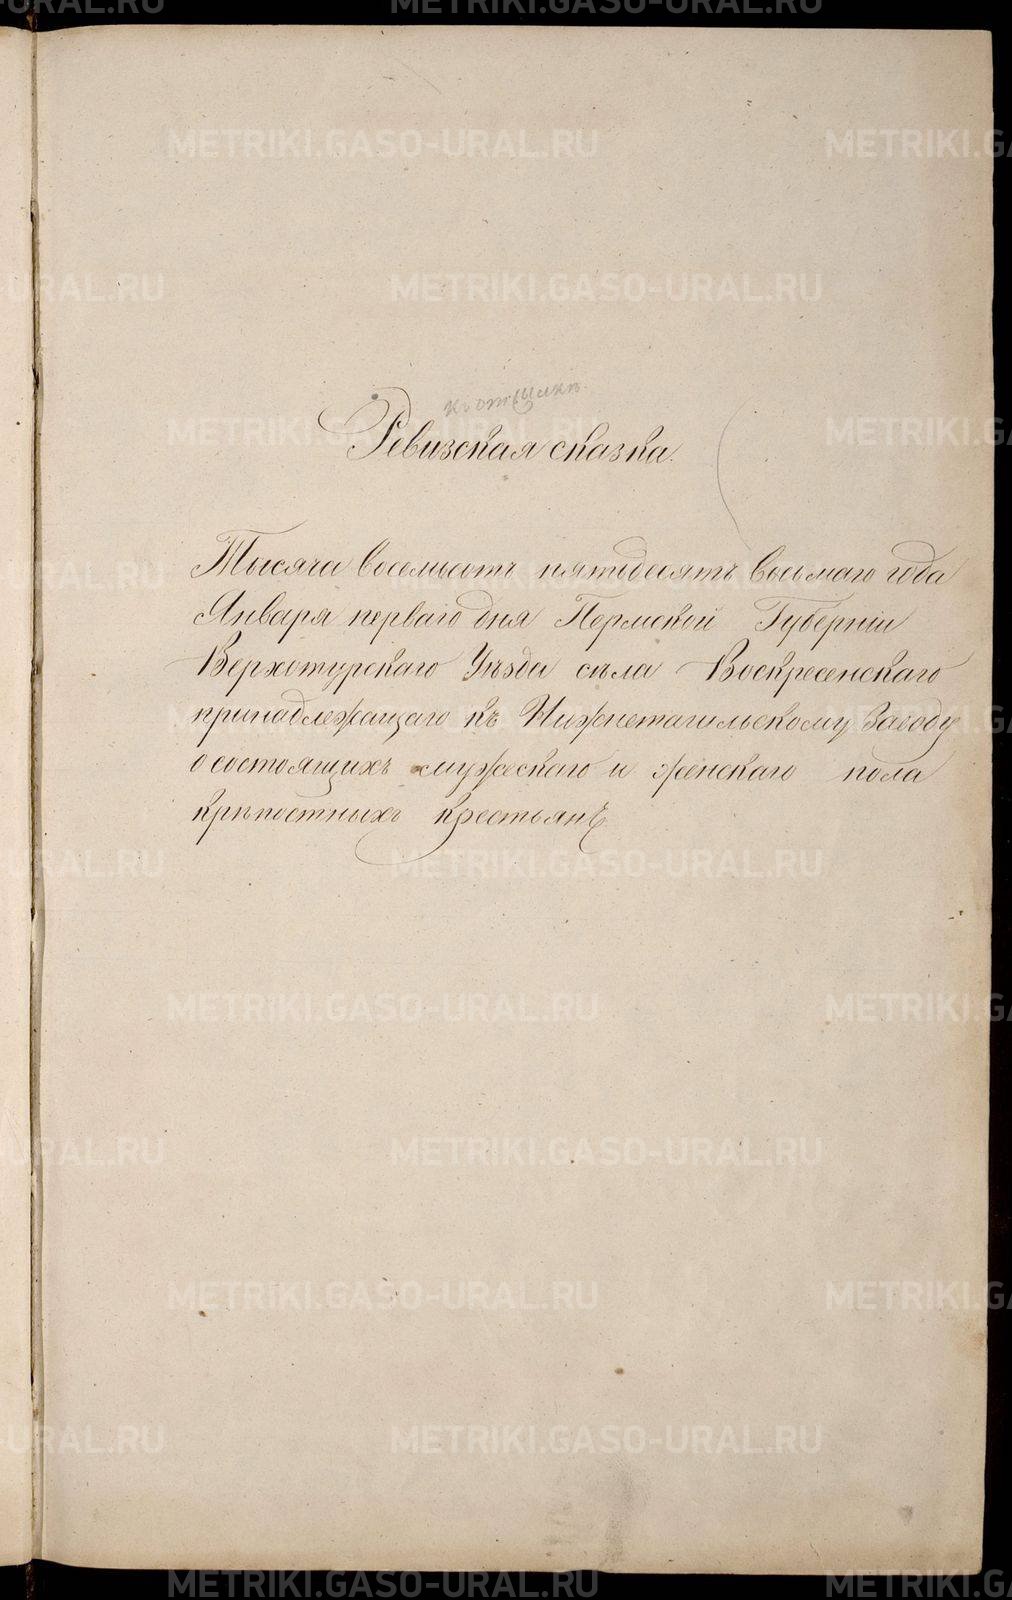 METRIKI.GASO-URAL.RU
Ревизская сказка.
Тысяча восемьсотъ пятьдесятъ восьмаго года
Января перваго дня Пермской Губерніи
Верхотурскаго Уѣзда села Воскресенскаго
принадлежащаго къ Нижнетагильскому Заводу
о состоящихъ мужескаго и женскаго пола
крѣпостныхъ крестьянъ